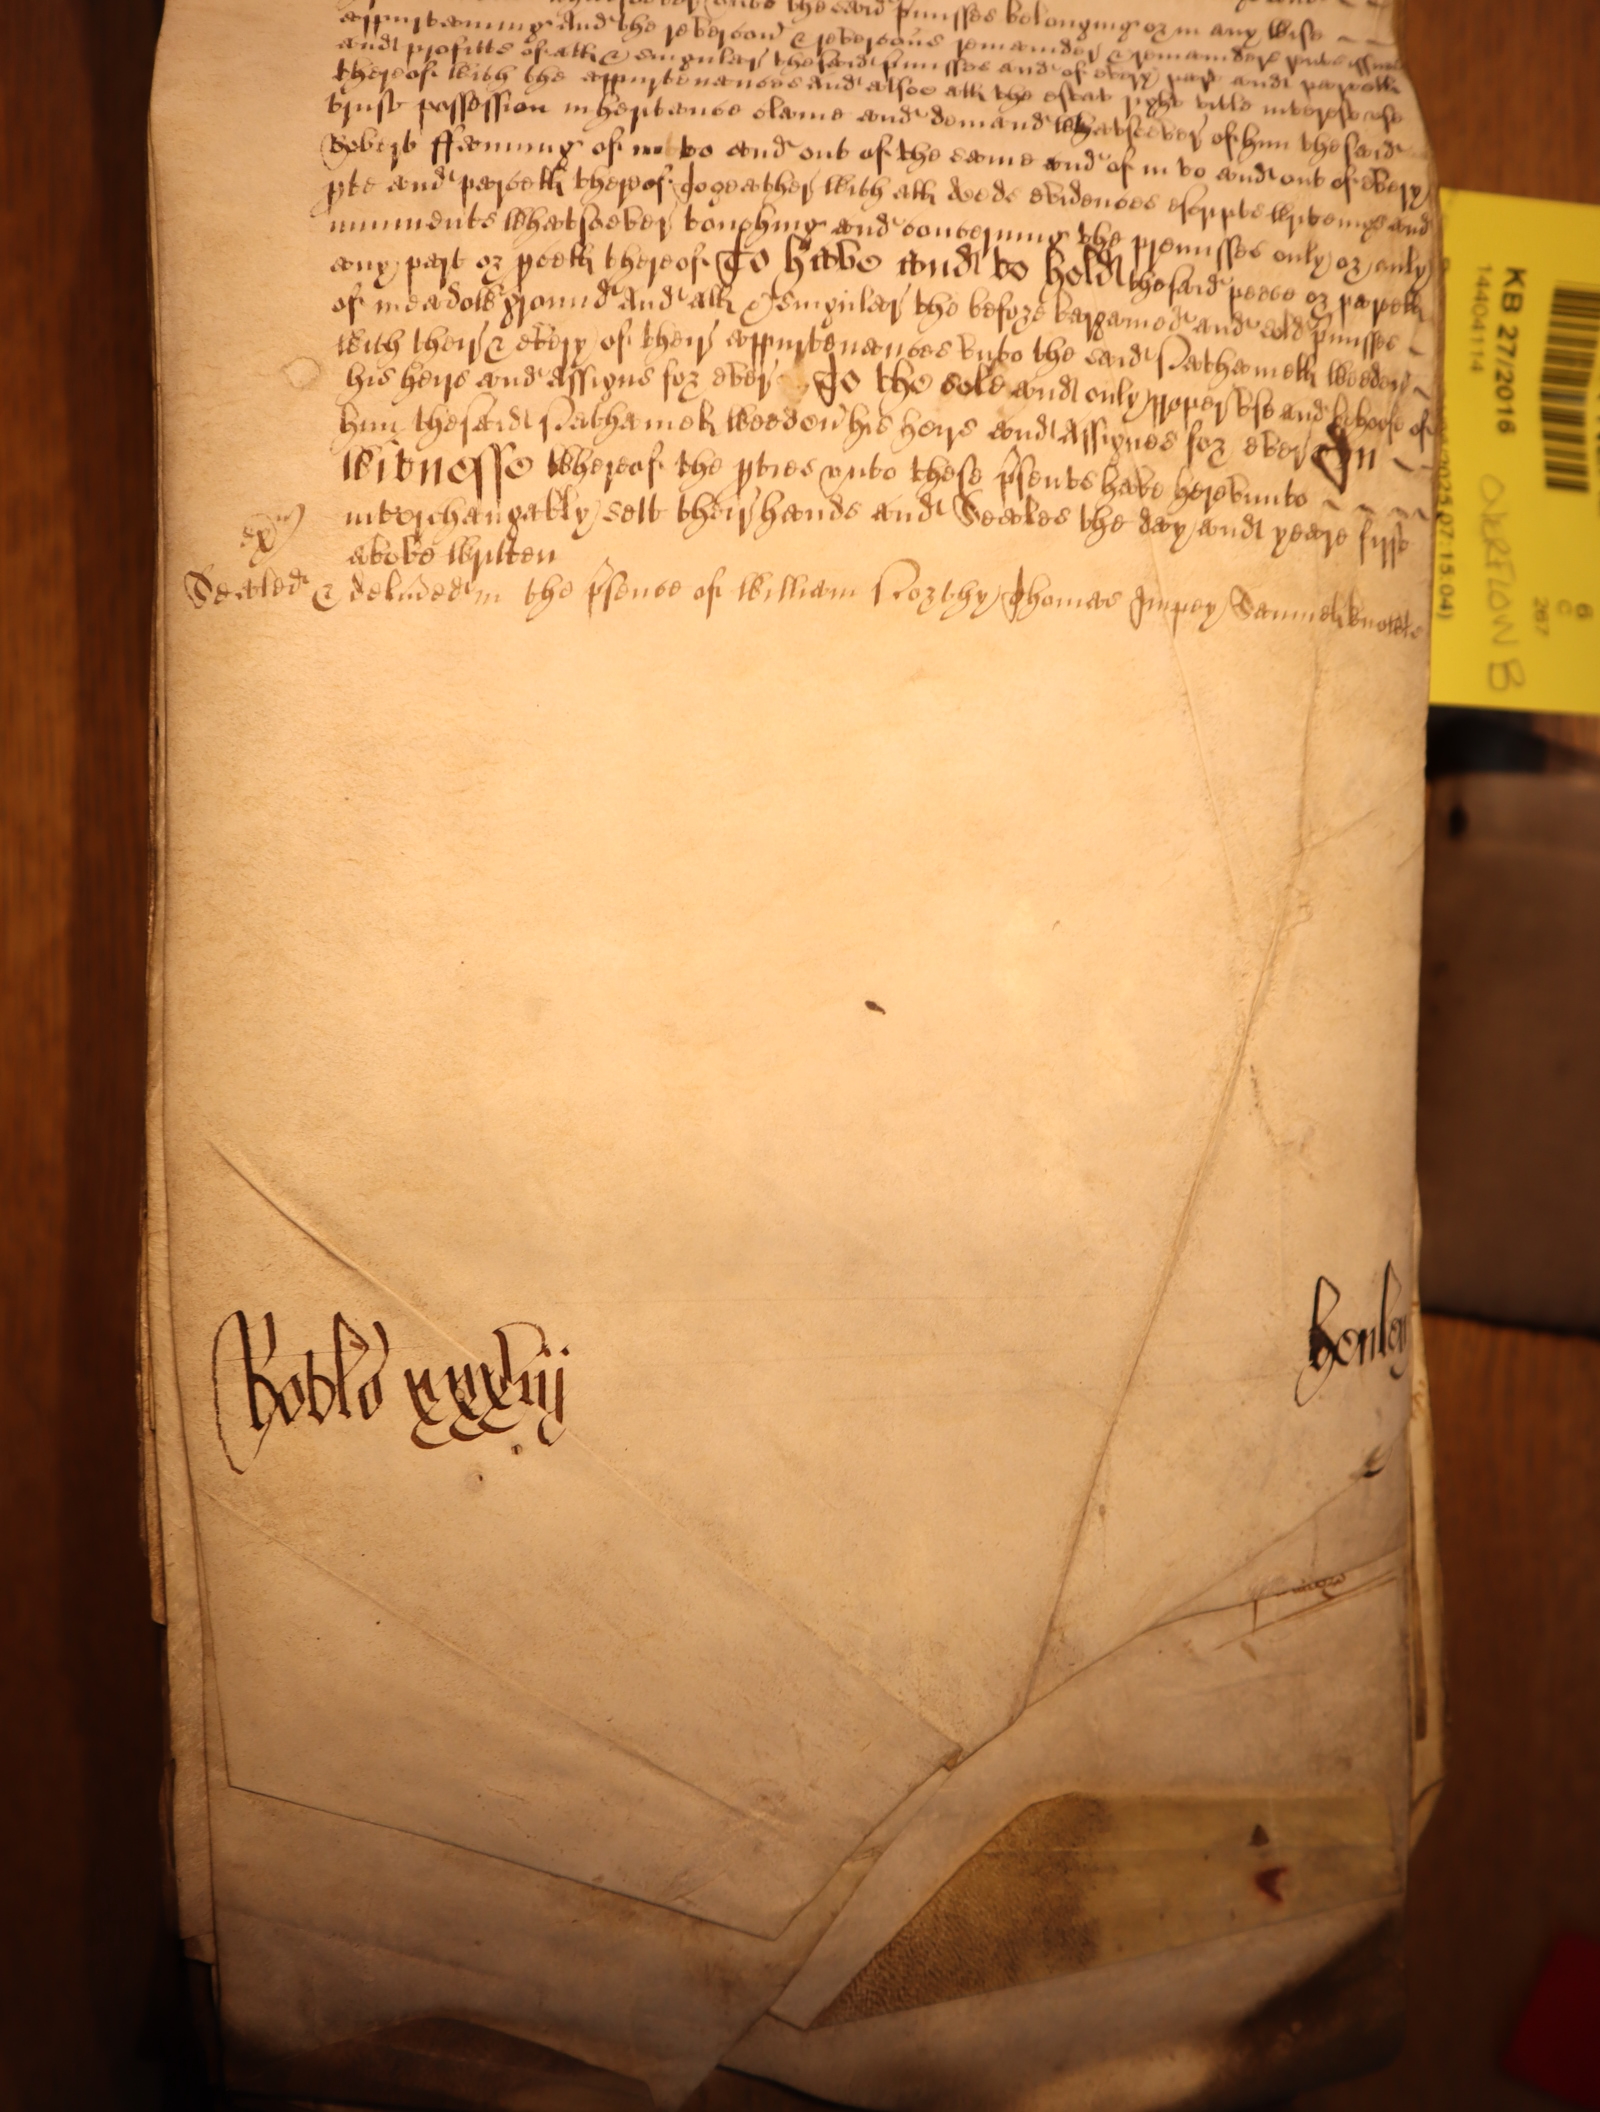 whatsoever unto the said p̄misses belonging or in any wise
appurtaining And the revercoñ & revercons remainder & remainders rents issues
and profitts of all & singuler the said p̄misses and of every part and parcell
thereof with the appurtenances And alsoe all the estat right title interest use
trust possession inheritance clame and demand whatsoever of him the said
Robert ffanning of in to and out of the same and of in to and out of every
pte and parcell thereof Togeather with all deeds evidences escripts writeings and
muniments whatsoever touching and concerning the premisses only or only
any part or pcell thereof To have and to hold the said peece or parcell
of meadow ground And all & singuler the before bargained and sold p̄misses
with their & every of their appurtenances unto the said Nathaniell Weeden
his heirs and Assigns for ever To the sole and only proper use and behoofe of
him the said Nathaniell Weeden his heirs and Assignes for ever In
Witnesse whereof the pties unto these p̄sents have hereunto
interchangably sett their hands and Seales the day and yeare first
above written
exr
Sealed & delivered in the p̄sence of William Northy Thomas Impey Samuell
Rotlo xxxiij
Henley
KB 27/2016
14404114
OVERFLOW B
6
C
267
2025 07:15:04)